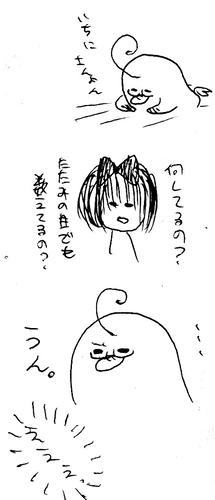 いちに
さんよん
何してるの?
たたみの目でも
数えてるの?
…
うん。
えええっ